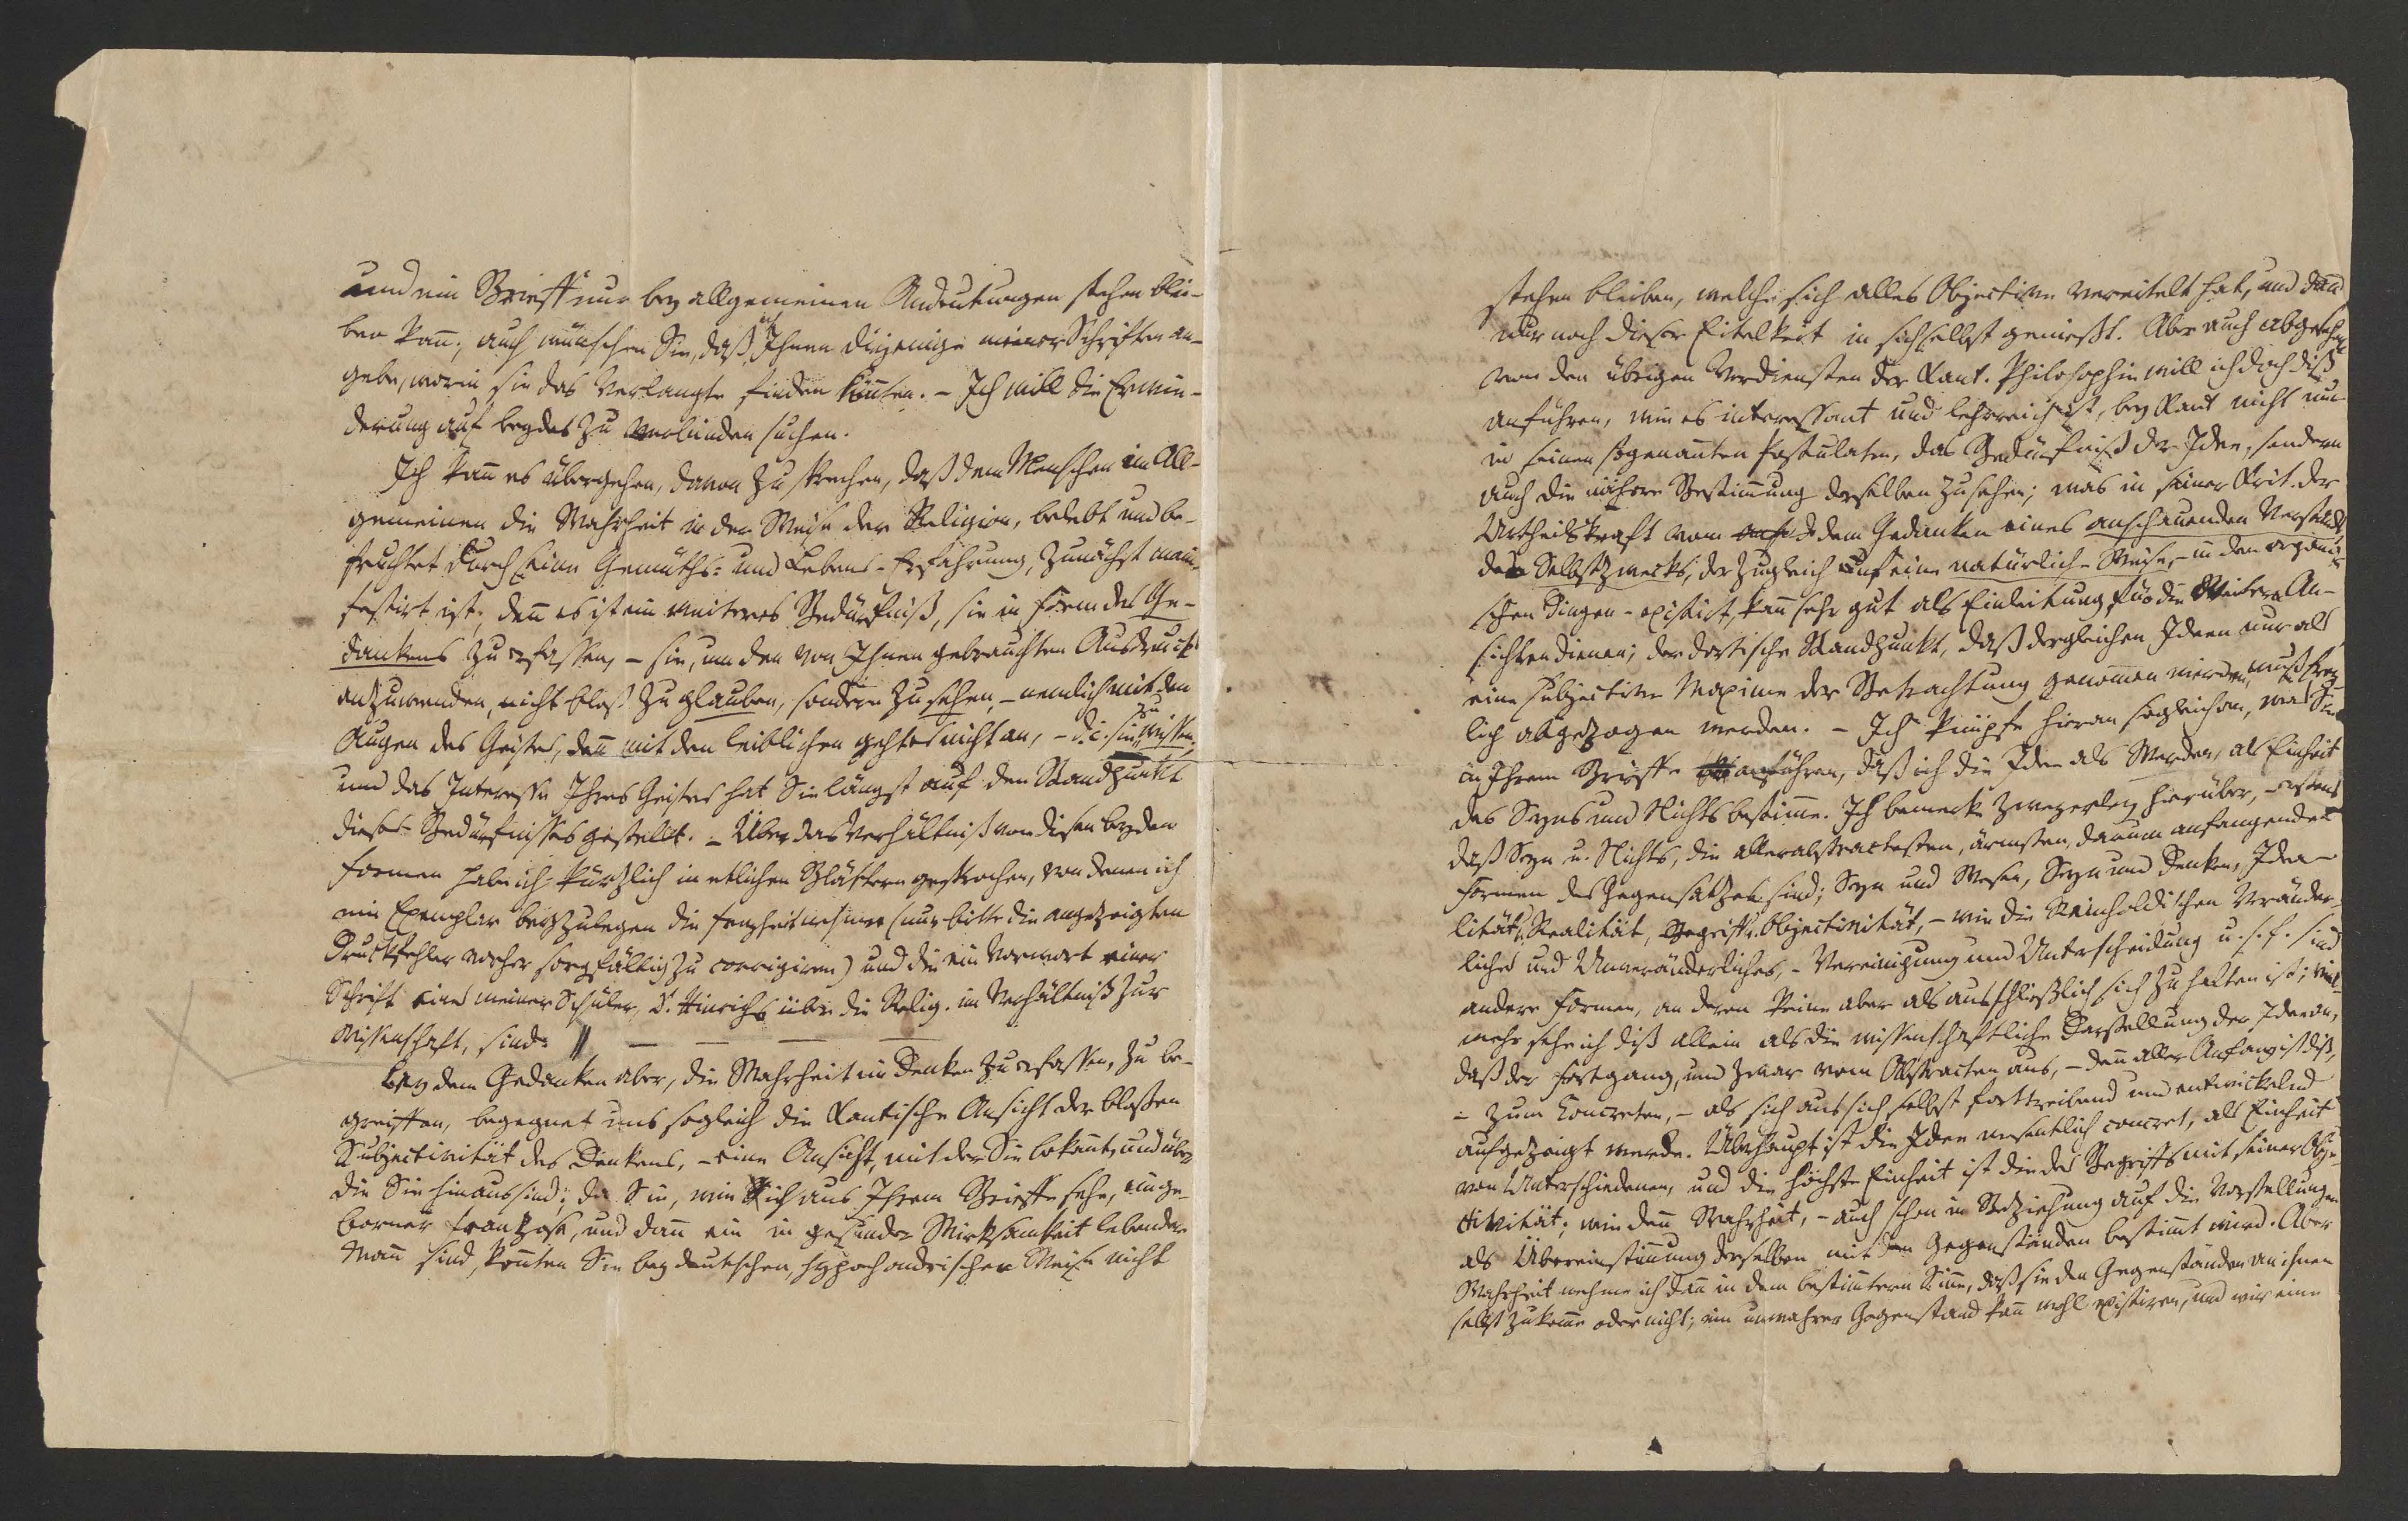 und ein Brieff nur bey allgemeinen Andeutungen stehen blei-
ben kan̄; auch wünschen Sie, daß ich Ihnen diejenige meiner Schriften an-
gebe, worin sie das Verlangte finden kön̄ten. – Ich will die Erwie-
derung auf beydes zu verbinden suchen.
Ich kan̄ es übergehen, davon zu sprechen, daß dem Menschen im All-
gemeinen die Wahrheit in der Weise der Religion, belebt und be-
fruchtet durch seine Gemüths- und Lebens-Erfahrung, zunächst mani-
festirt ist; den̄ es ist ein weiteres Bedürfniß, sie in Form des Ge-
dankens zu erfassen, – sie, um den von Ihnen gebrauchten Ausdruck
anzuwenden, nicht bloß zu glauben, sondern zu sehen, – nemlich mit den
Augen des Geistes, den̄ mit den leiblichen geht es nicht an, – d. i. sie zu wissen;
und das Interesse Ihres Geistes hat Sie längst auf den Standpunkt
dieses Bedürfnisses gestellt. – Über das Verhältniß von diesen beyden
Formen habe ich kürzlich in etlichen Blättern gesprochen, von denen ich
ein Exemplar beyzulegen die Freyheit nehme (nur bitte die angezeigten
Druckfehler vorher sorgfältig zu corrigiren) und die ein Vorwort einer
Schrift eines meiner Schüler, D. Hinrichs über die Relig. im Verhältniß zur
Wissenschaft, sind. // — — — —
Bey dem Gedanken aber, die Wahrheit im Denken zu erfassen, zu be-
greiffen, begegnet uns sogleich die Kantische Ansicht der blossen
Subjectivität des Denkens, – eine Ansicht, mit der Sie bekan̄t, und über
die Sie hinaus sind; da Sie, wie ich aus Ihrem Brieffe sehe, einge-
borner Franzose, und dan̄ ein in gesunder Wirksamkeit lebender
Man̄ sind, kon̄ten Sie bey deutscher, hypochondrischer Weise nicht
stehen bleiben, welche sich alles Objective vereitelt hat, und dan̄
nur noch diese Eitelkeit in sich selbst genießt. Aber auch abgesehen
von den übrigen Verdiensten der Kant. Philosophie will ich doch diß
anführen, wie es interessant und lehrreich ist, bey Kant nicht nur
in seinen sogenan̄ten Postulaten, das Bedürfniß der Idee, sondern
auch die nähere Bestim̄ung derselben zu sehen; was in seiner Krit. der
Urtheilskraft von dem Gedanken eines anschauenden Verstands,
des Selbstzwecks, der zugleich auf eine natürliche Weise, – in den organi-
schen Dingen – existirt, kan̄ sehr gut als Einleitung für die weitern An-
sichten dienen; der dortische Standpunkt, daß dergleichen Ideen nur als
eine subjective Maxime der Betrachtung genom̄en werden, muß frey-
lich abgezogen werden. – Ich knüpfe hieran sogleich an, was Sie
in Ihrem Brieffe anführen, daß ich die Idee als Werden, als Einheit
des Seyns und Nichts bestim̄e. Ich bemerke zweyerley hierüber, – erstens
daß Seyn u. Nichts, die allerabstractesten, ärmsten, darum anfangenden
Formen des Gegensatzes sind; Seyn und Wesen, Seyn und Denken, Idea-
lität u. Realität, Begriff u. Objectivität, – wie die Reinholdischen Veränder-
liches und Unveränderliches, – Vereinigung und Unterscheidung u. s. f. sind
andere Formen, an deren keine aber als ausschließlich sich zu halten ist; viel-
mehr sehe ich diß allein als die wissenschaftliche Darstellung der Idee an,
daß der Fortgang, und zwar vom Abstracten aus, – den̄ aller Anfang ist diß,
– zum Concreten, – als sich aus sich selbst forttreibend und entwickelnd
aufgezeigt werde. Überhaupt ist die Idee wesentlich concret, als Einheit
von Unterschiedenen, und die höchste Einheit ist die des Begriffs mit seiner Obje-
ctivität; wie den̄ Wahrheit, – auch schon in Beziehung auf die Vorstellungen
als Übereinstim̄ung derselben mit den Gegenständen bestim̄t wird. Aber
Wahrheit nehme ich dan̄ in dem bestim̄tern Sin̄e, daß sie den Gegenständen an ihnen
selbst zukom̄e oder nicht; ein unwahrer Gegenstand kan̄ wohl existiren, und wir eine